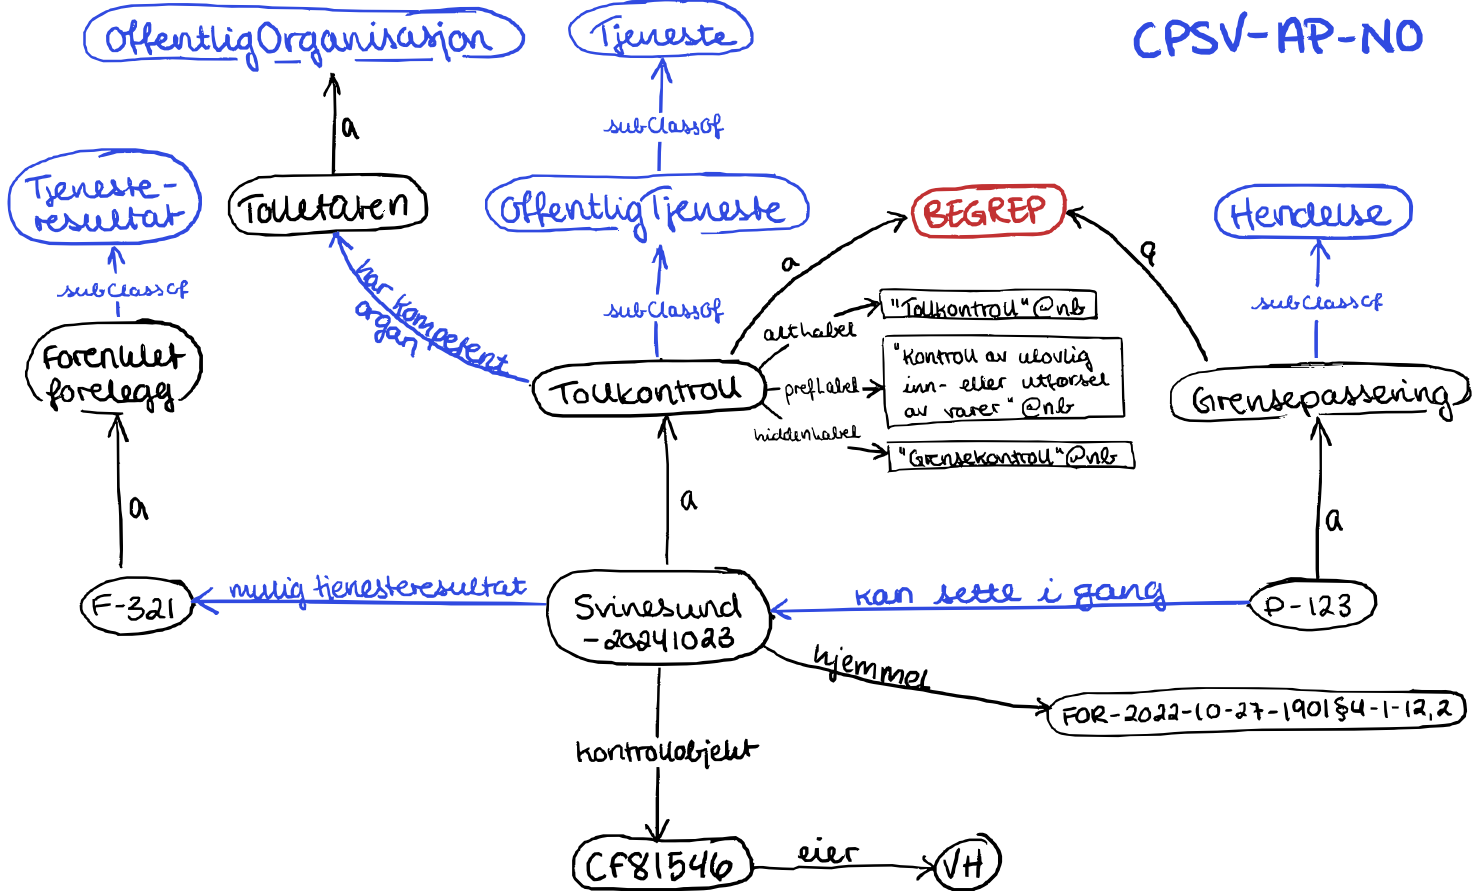 OffentligOrganisasjon
Tjeneste
CPSV-AP-NO
a
subClassOf
Tjeneste-
resultat
Tolletaten
OffentligTjeneste
BEGREP
Hendelse
a
a
subClassOf
har kompetent
organ
subClassOf
subClassOf
altLabel
"Tollkontroll"@nb
Forenklet
forelegg
Tollkontroll
prefLabel
"Kontroll av ulovlig
inn- eller utførsel
av varer"@nb
Grensepassering
hiddenLabel
"Grensekontroll"@nb
a
a
a
F-321
mulig tjenesteresultat
Svinesund
-20241023
kan sette i gang
P-123
hjemmel
FOR-2022-10-27-1901§4-1-12,2
kontrollobjekt
CF81546
eier
VH